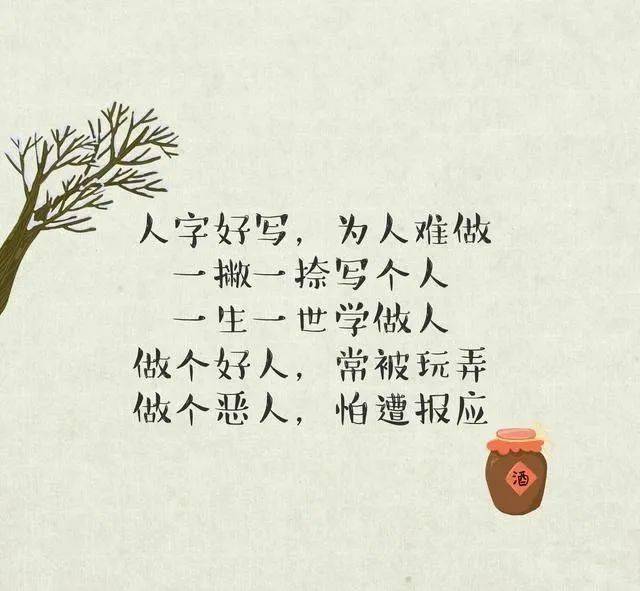 人字好写，为人难做
一撇一捺写个人
一生一世学做人
做个好人，常被玩弄
做个恶人，怕遭报应
酒